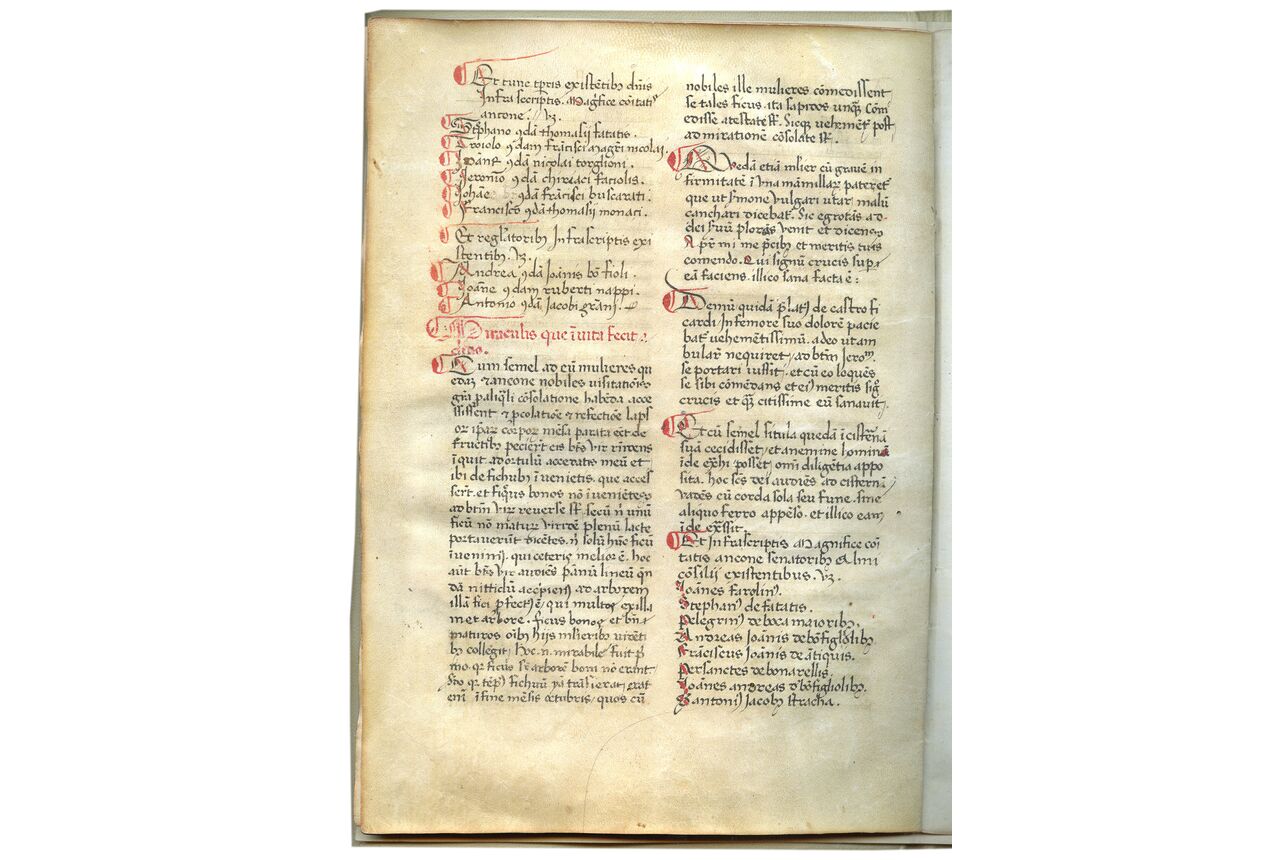 Et tunc tp̄ris existētibꝫ dn̄is
Infrascriptis. Magᷤfice cōitatꝭ
ancone. vꝫ.
Stephano qͦdā thomasii fatatis.
Troiolo qͦdam frācisci magr̄i nicolai.
qͦdā nicolai torglioni.
Jeronīo qͦdā chiriaci faciolis.
qͦdā frācisci buscarati.
Francisco qͦdā thomasii monaci.
Et reglatoribꝫ Infrascriptis exi
stentibꝫ. vꝫ.
Andrea qͦdā Joānis bōfioli.
Joāne qͦdam ruberti nappi.
Antonio qͦdā Jacobi
Miraculis que ī uita fecit
Cum semel ad eū mulieres qu
edaꝫ ancone nobiles uisitationis
grā cōsolatione habēda acce
ssissent et refectiōe
corpor mēsa parata eēt de
fructibꝫ
īquit ad ortulū accedatis meū et
ibi de fichubꝫ īvenietis. que acces
serūt. et bonos nō īvenietes
ad btm̄ vir reverse sͭ. secū
ficū nō matur viridē plenū lacte
portaverūt dicētes. solū hūc ficū
īvenimꝰ. qui ceteris melior ē. hoc
aūt vir audiēs pānū lineū
dā nittidū accipiens ad arborem
illā fici ꝑfectꝰ ē, qui multos ex illa
met arbore. ficus bonos et
maturos oībꝫ hijs mlieribꝫ
bꝫ collegit. hoc .n. mirabile fuit
mo. qꝛ ficus arborē boni nō erant.
qꝛ fichuū trāsierat erat
enī ī fine mēsis octubris, quos cū
nobiles ille mulieres cōmedissent
se tales ficus ita sapidos unqᷓ com̄
edisse atestate sͭ. Sicqꝫ vehemēt post
admirationē cōsolate sͭ.
Quedā etiā mlier cū gravē in
firmitatē ī una māmillaꝝ pateretᷣ
que ut simone vulgari utar malū
canchari dicebatᷣ. Sic egrotās ad
dei suū plorās venit et dicens
pr̄ mi me p̄cibꝫ et meritis tuis
comendo. Qui signū crucis supᵉ
eā faciens. illico sana facta ē:
Demū quidā de castro fi
cardi In femore suo dolorē pacie
batᷣ vehemētissimū. adeo ut am
bulare nequiret, ad btm̄ Jeroᵐ.
se portari iussit. et cū eo loquēs
se sibi comēdans et eiꝰ meritis sig
crucis et citissime eū sanavit.
Et cū semel situla quedā ī cisternā
suā cecidisset, et a nemine hominū
īde ex̄hi possēt omī diligētia appo
sita. hoc sc̄s dei audiēs ad cisternā
vadēs cū corda sola seu fune. sine
aliquo ferro appēso. et illico eam
īde ex̄ssit.
Et Infrascriptis Magnifice coī
tatis ancone senatoribꝫ almi
cōsilij existentibus. vꝫ.
Joānes farolinꝰ.
Stephanꝰ de fatatis.
Pelegrinꝰ de bocamaioribꝫ.
Andreas Joānis de bōfigliolibꝫ
Frāciscus Joānis de ātiquis.
Persanctes de bonarellis.
Joānes andreas d bōfigliolibꝫ.
antoniꝰ Jacobꝫ stracha.